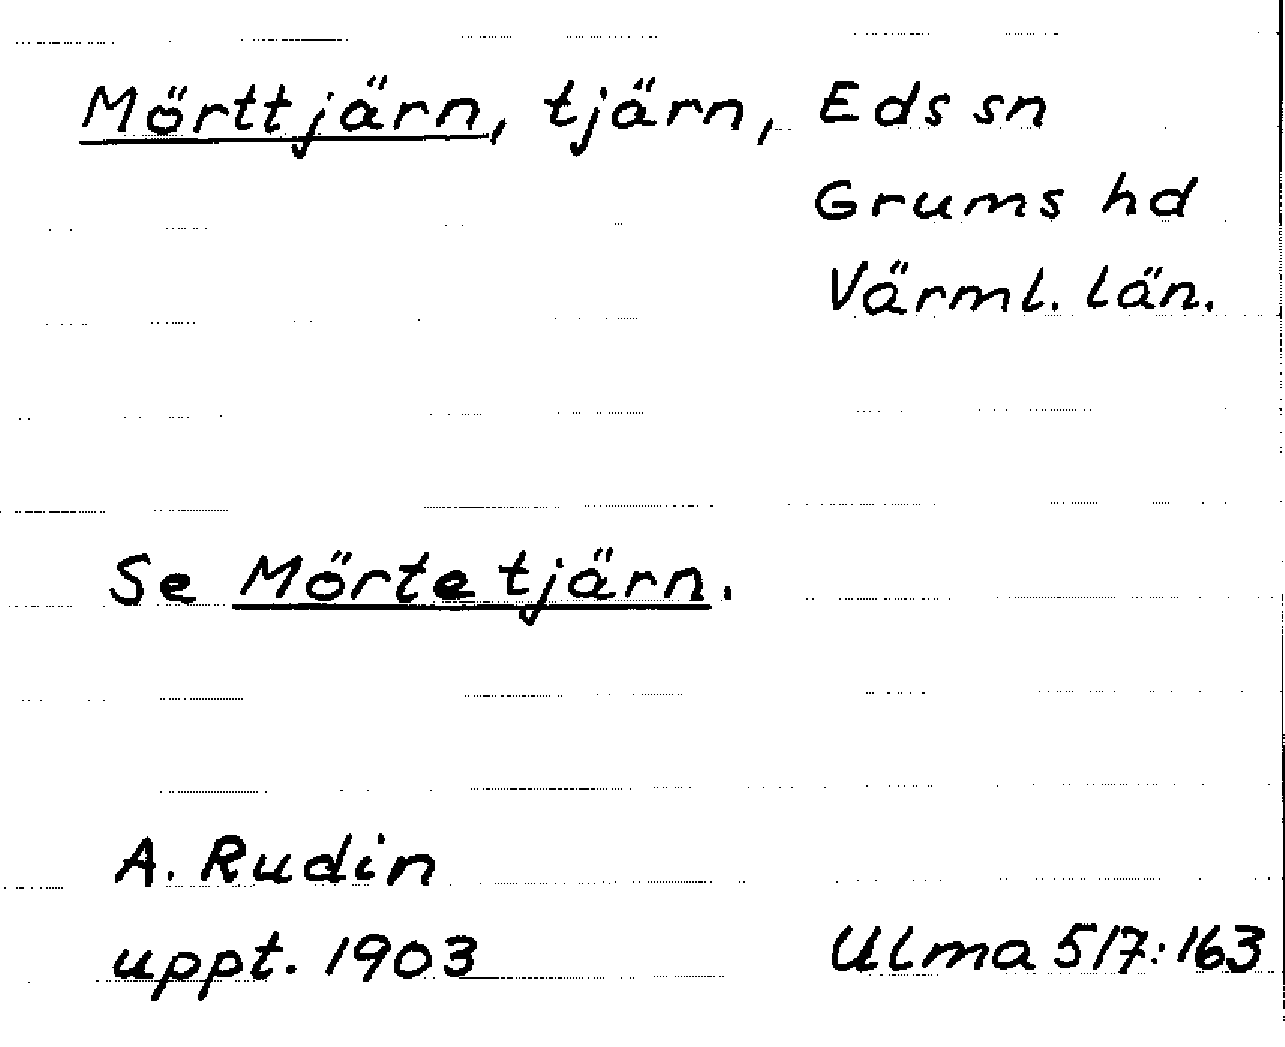 Mörttjärn, tjärn, Eds sn
Grums hd
Värml. län.
Se Mörtetjärn.
A. Rudin
uppt. 1903
Ulma 517:163